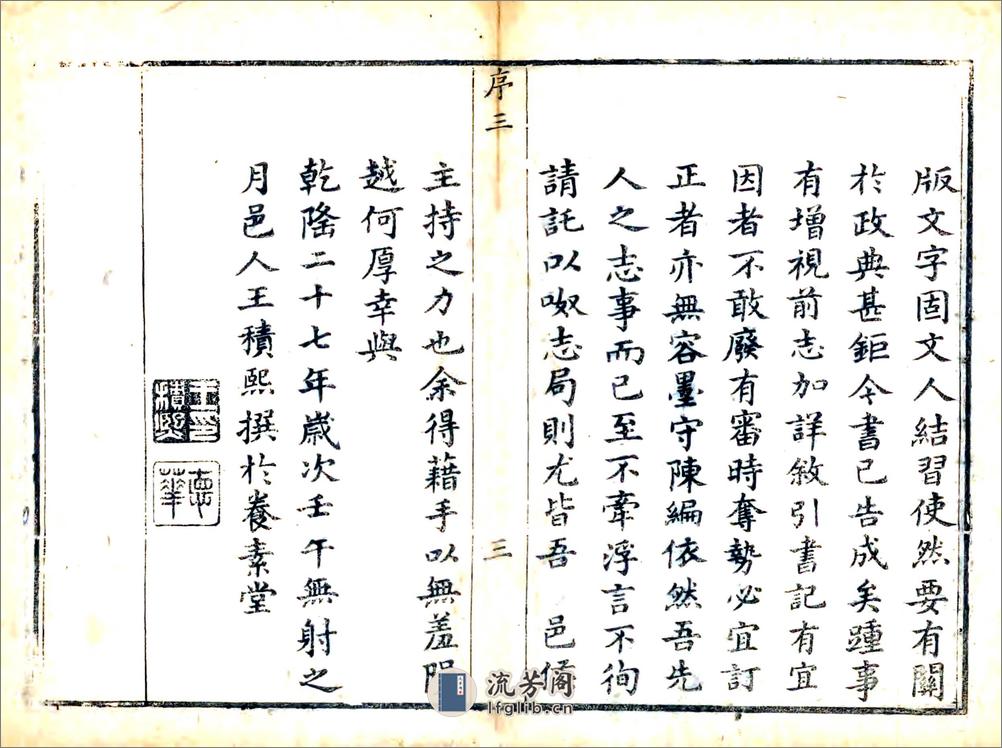 版文字固文人結習使然要有關
於政典甚鉅今書已告成矣踵事
有增視前志加詳敘引書記有宜
因者不敢廢有審時奪勢必宜訂
正者亦無容墨守陳編依然吾先
人之志事而已至不牽浮言不徇
請託以呶志局則尤皆吾 邑侯
序三
三
主持之力也余得藉手以無羞隕
越何厚幸與
乾隆二十七年歲次壬午無射之
月邑人王積熙撰於養素堂
王印積熙
流芳阁
lfglib.cn